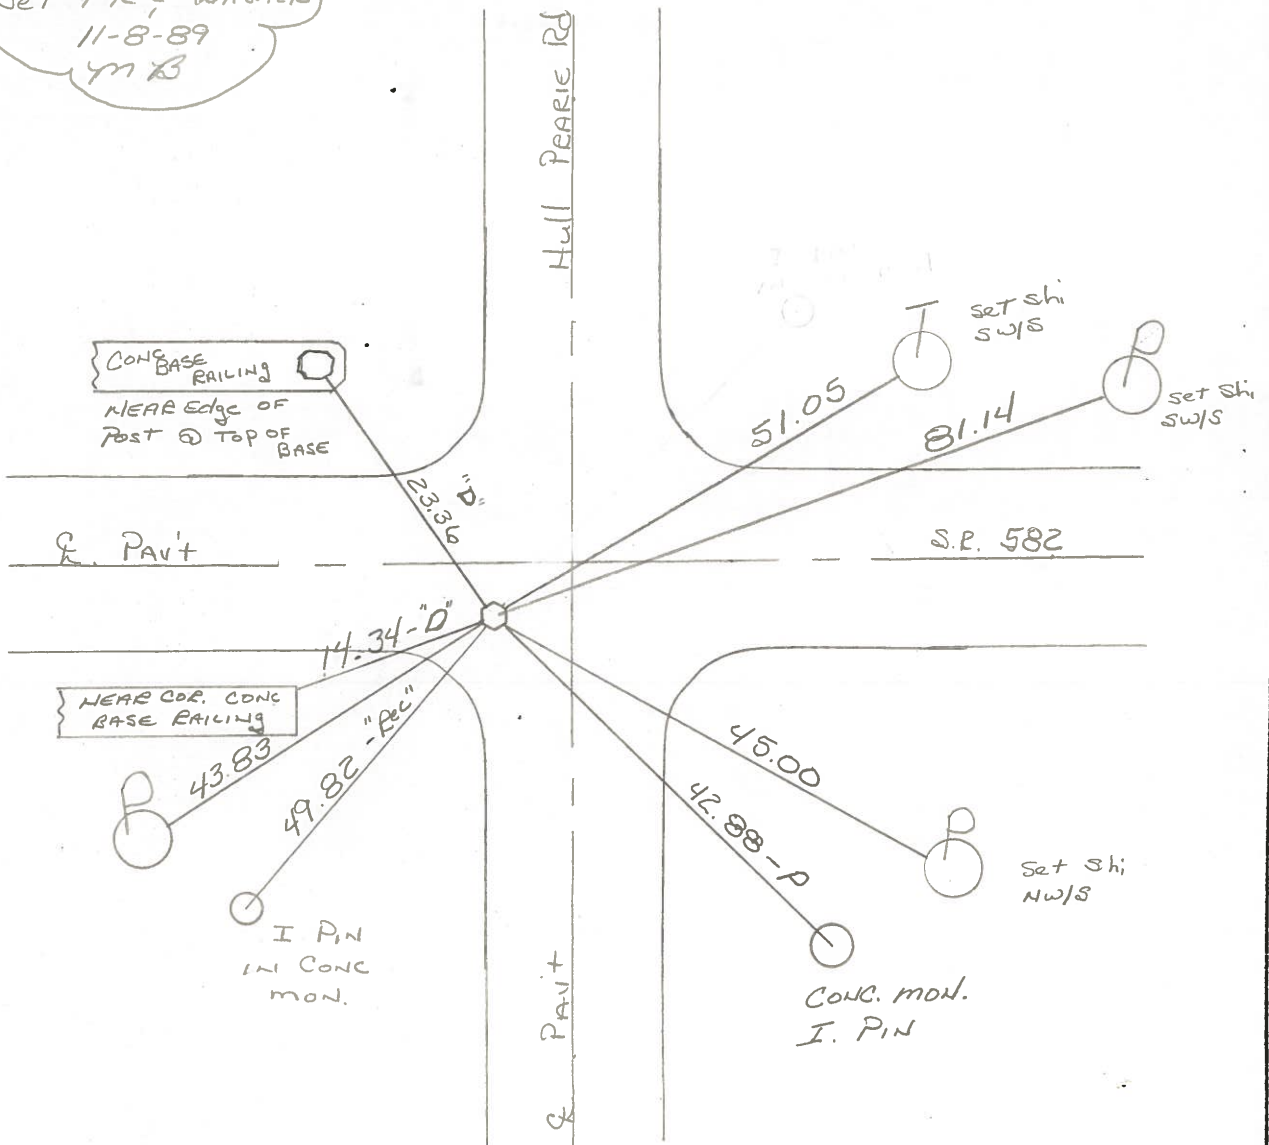 Set P.K. & WASHER
11-8-89
MB
Hull PEARIE Rd
Set Shi
SW/S
T
P
Set Shi
SW/S
CONC BASE
RAILING
NEAR Edge OF
POST @ TOP OF
BASE
51.05
81.14
23.36
"D"
℄ PAV't
S.R. 582
14.34-"D"
NEAR COR. CONC
BASE RAILING
43.83
49.82 -"Rec"
45.00
42.88-P
P
P
Set Shi
NW/S
I PIN
IN CONC
MON.
CONC. MON.
I. PIN
℄ PAV't